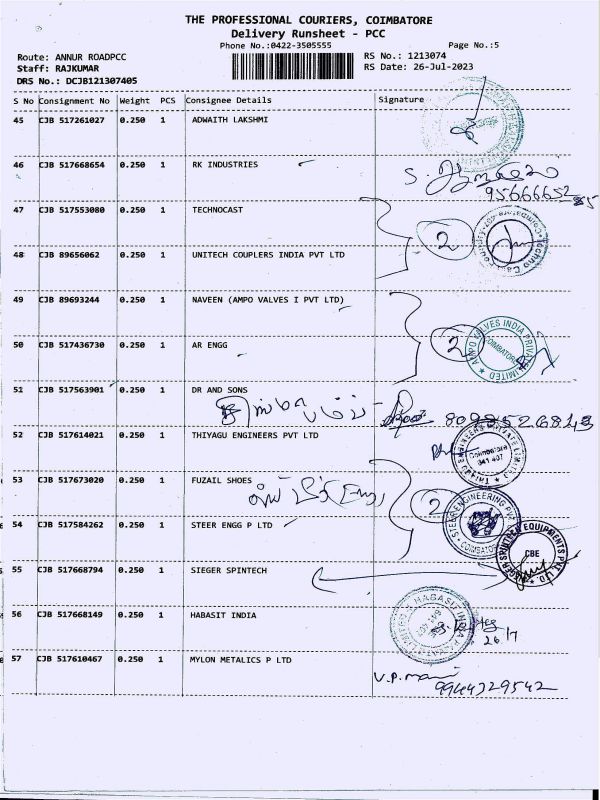 THE PROFESSIONAL COURIERS, COIMBATORE
Delivery Runsheet - PCC
Phone No.:0422-3505555 Page No.:5
Route: ANNUR ROADPCC RS No.: 1213074
Staff: RAJKUMAR RS Date: 26-Jul-2023
DRS No.: DCJB121307405
S No Consignment No Weight PCS Consignee Details Signature
45 CJB 517261027 0.250 1 ADWAITH LAKSHMI
46 CJB 517668654 0.250 1 RK INDUSTRIES
47 CJB 517553080 0.250 1 TECHNOCAST
2
48 CJB 89656062 0.250 1 UNITECH COUPLERS INDIA PVT LTD
49 CJB 89693244 0.250 1 NAVEEN (AMPO VALVES I PVT LTD)
AMPO VALVES INDIA PRIVATE LIMITED
COIMBATORE
2
50 CJB 517436730 0.250 1 AR ENGG
51 CJB 517563901 0.250 1 DR AND SONS
52 CJB 517614021 0.250 1 THIYAGU ENGINEERS PVT LTD
Coimbatore
641 407
53 CJB 517673020 0.250 1 FUZAIL SHOES
2
54 CJB 517584262 0.250 1 STEER ENGG P LTD
STEER ENGINEERING PVT
COIMBATORE
CBE
55 CJB 517668794 0.250 1 SIEGER SPINTECH
56 CJB 517668149 0.250 1 HABASIT INDIA
26/7
57 CJB 517610467 0.250 1 MYLON METALICS P LTD
V.P. mani
9944329542